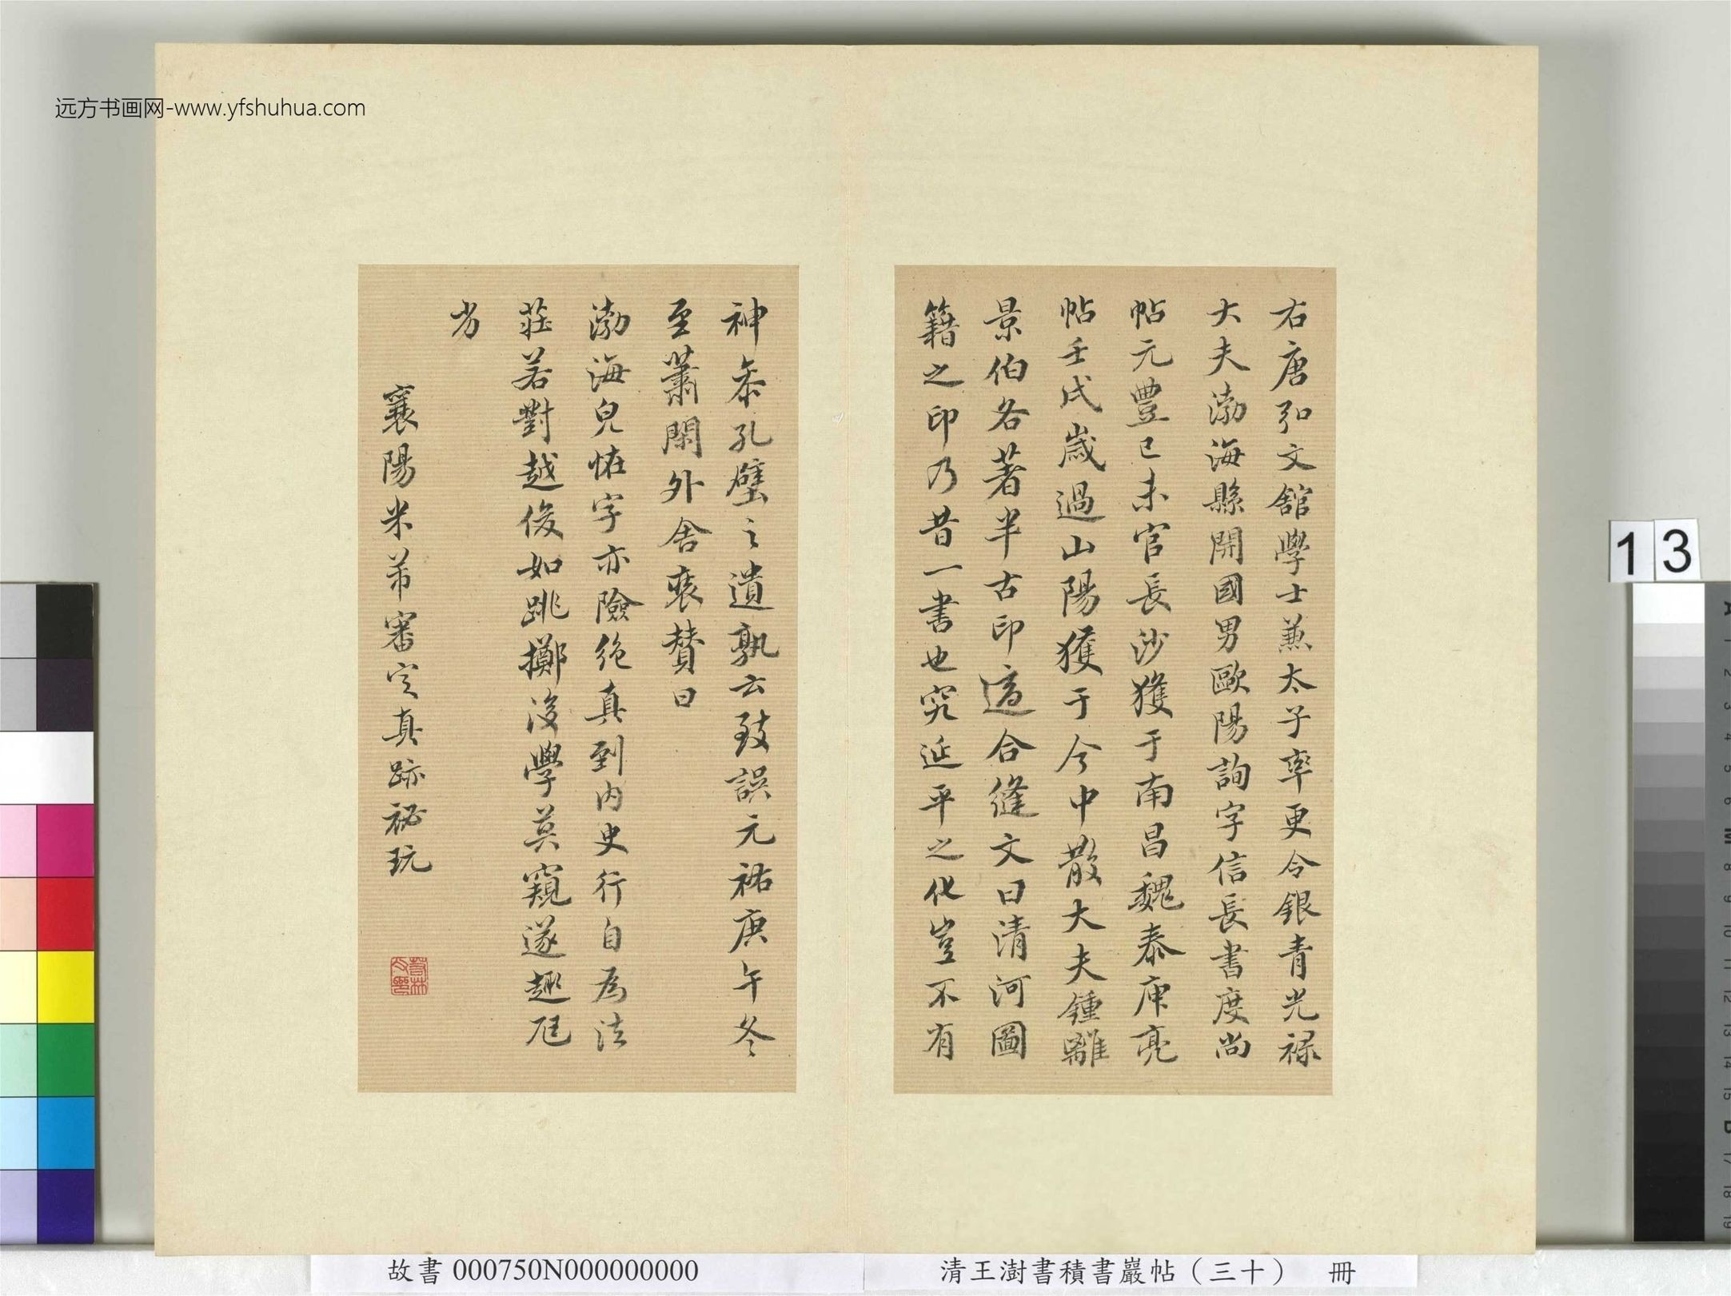 远方书画网-www.yfshuhua.com
右唐弘文館學士兼太子率更令銀青光祿
大夫渤海縣開國男歐陽詢字信長書度尚
帖元豐己未官長沙獲于南昌魏泰庾亮
帖壬戌歲過山陽獲于今中散大夫鍾離
景伯各著半古印適合縫文曰清河圖
籍之印乃昔一書也究延平之化豈不有
神忝孔壁之遺孰云致誤元祐庚午冬
至蕭閑外舍裝贊曰
渤海皃恠字亦險絕真到內史行自為法
莊若對越俊如跳擲後學莫窺遂趣尫
劣
襄陽米芾審定真跡祕玩
13
故書 000750N000000000
清王澍書積書巖帖（三十） 冊